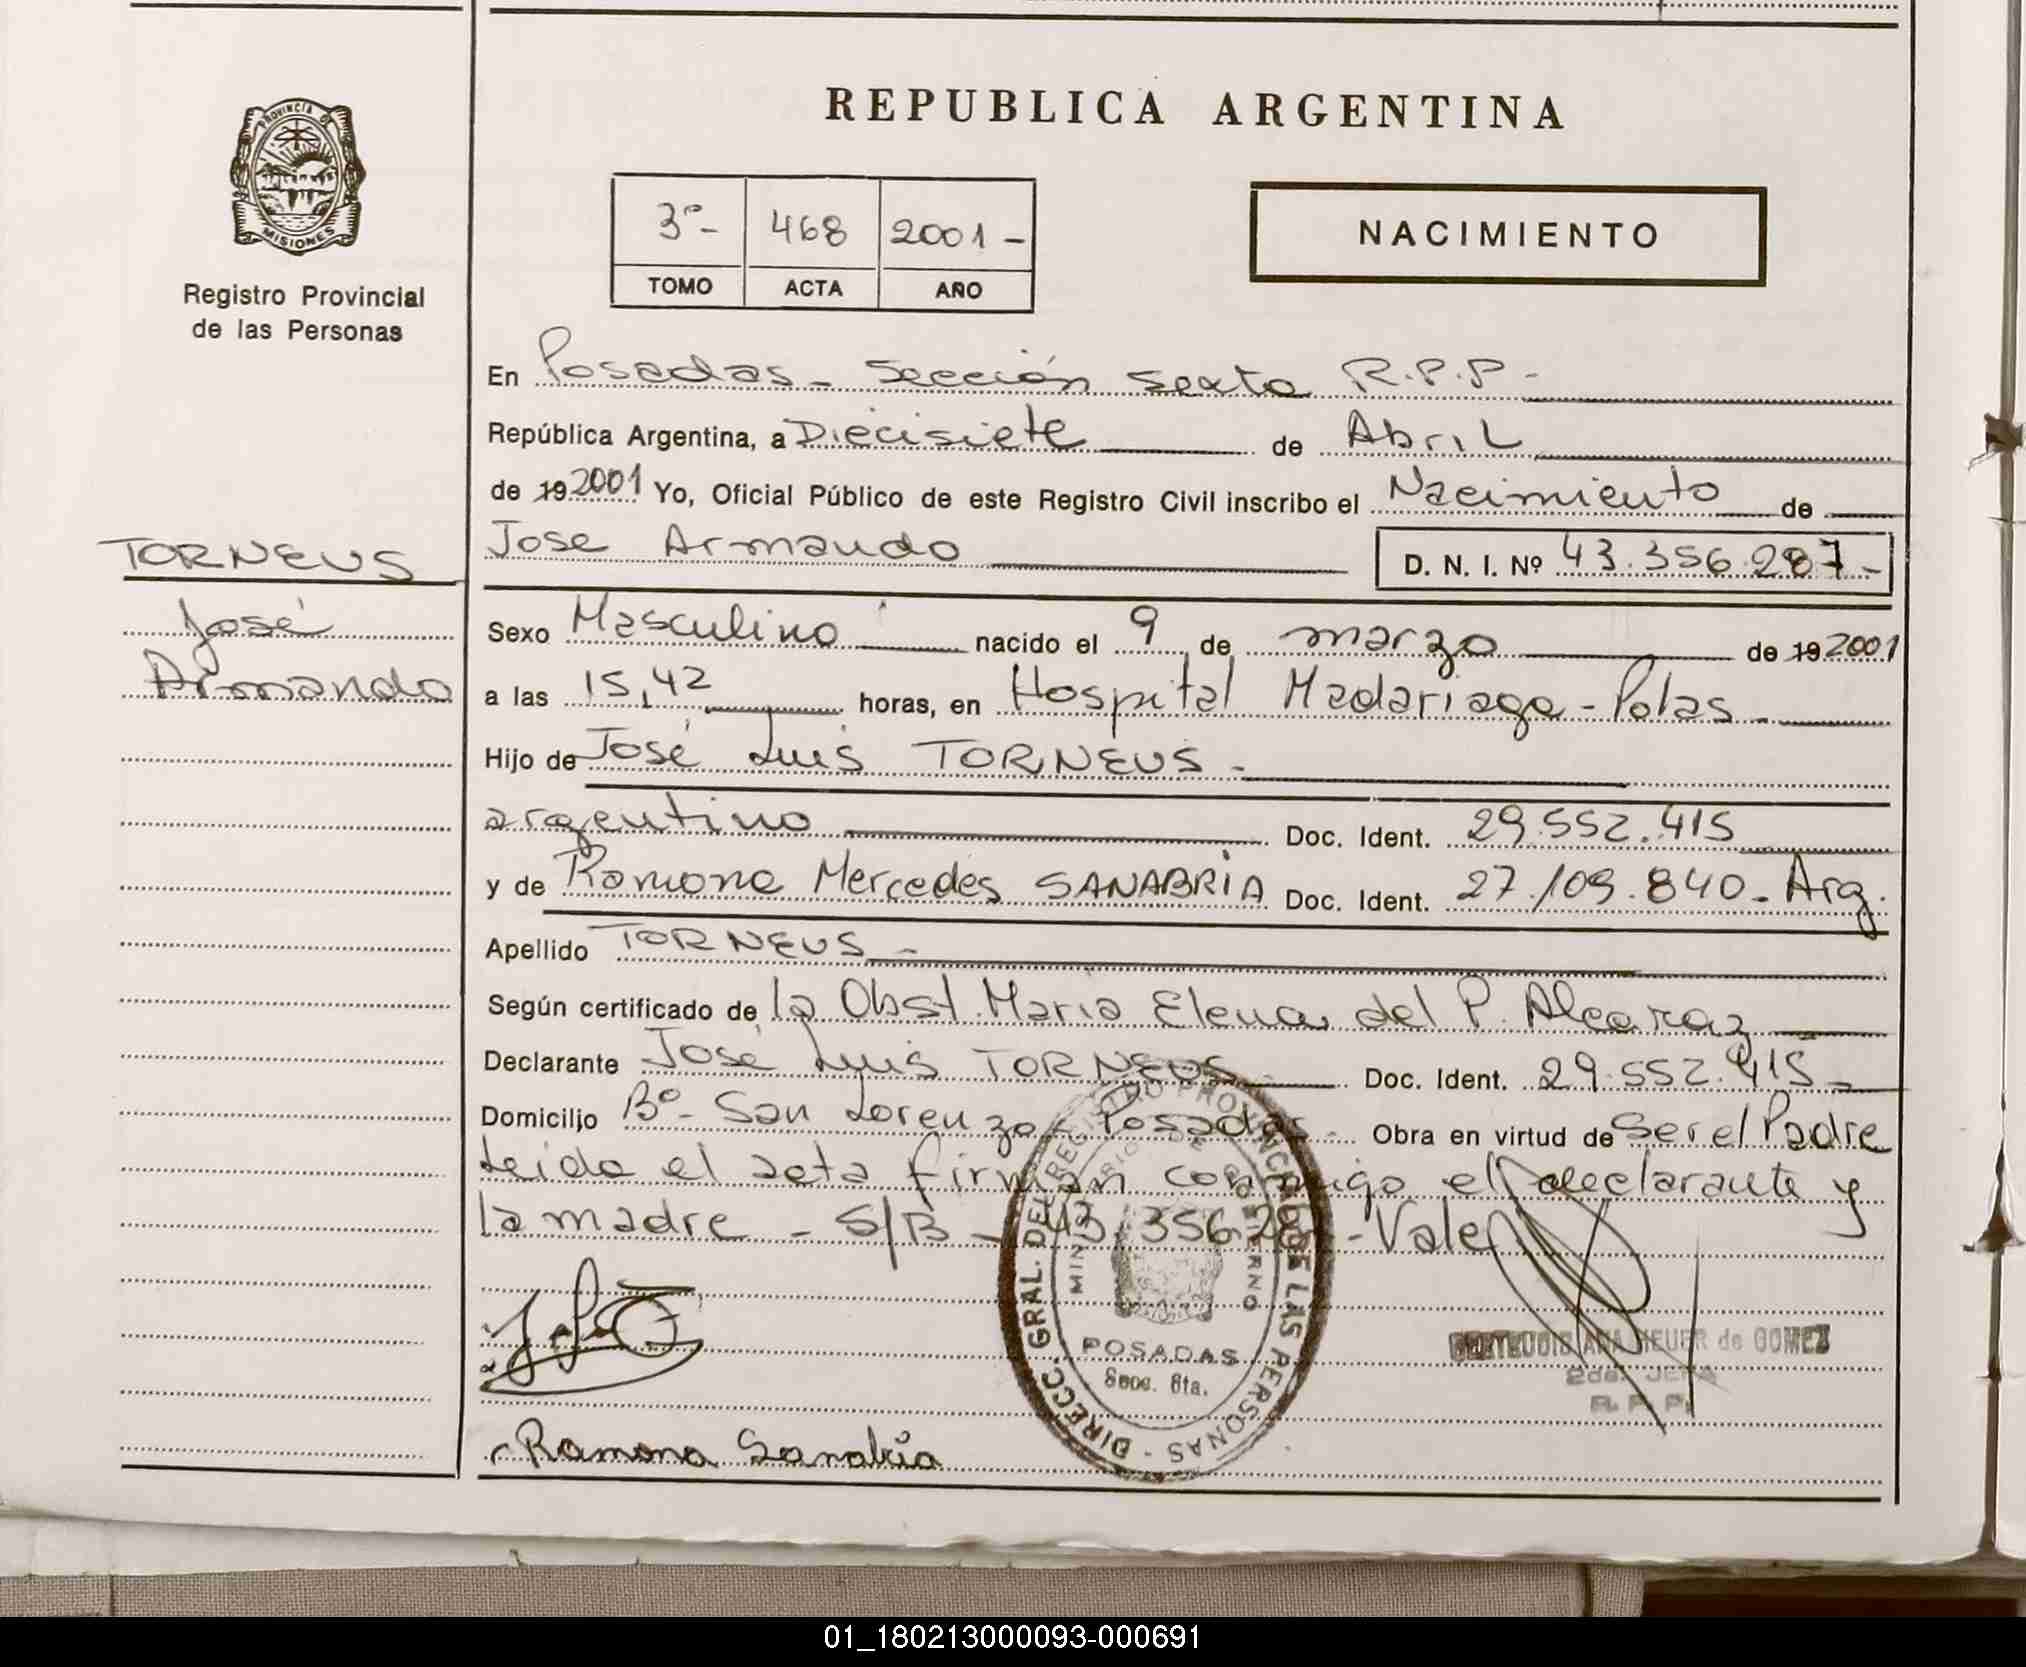 REPUBLICA ARGENTINA
PROVINCIA DE
MISIONES
Registro Provincial
de las Personas
3º- 468 2001-
TOMO ACTA AÑO
NACIMIENTO
En Posadas - Sección Sexta R.P.P.-
República Argentina, a Diecisiete de Abril
de 19 2001 Yo, Oficial Público de este Registro Civil inscribo el Nacimiento de
TORNEUS
José
Armando
Jose Armando D. N. I. Nº 43.356.287-
Sexo Masculino nacido el 9 de marzo de 19 2001
a las 15,42 horas, en Hospital Madariaga - Pdas -
Hijo de José Luis TORNEUS -
argentino Doc. Ident. 29.552.415
y de Ramona Mercedes SANABRIA Doc. Ident. 27.109.840- Arg.
Apellido TORNEUS -
Según certificado de la Obst. Maria Elena del P. Alcaraz
Declarante José Luis TORNEUS Doc. Ident. 29.552.415-
Domicilio Bº- San Lorenzo - Posadas - Obra en virtud de Ser el Padre
Leida el acta firman conmigo el declarante y
la madre - S/B - 43.356.28 - Vale
DIRECC. GRAL. DEL REGISTRO PROVINCIAL DE LAS PERSONAS -
MINISTERIO DE GOBIERNO
POSADAS
Secc. 6ta.
GERTRUDIS ANA HEUER de GOMEZ
2da. JEFA
R. P. P.
Ramona Sanabria
01_180213000093-000691